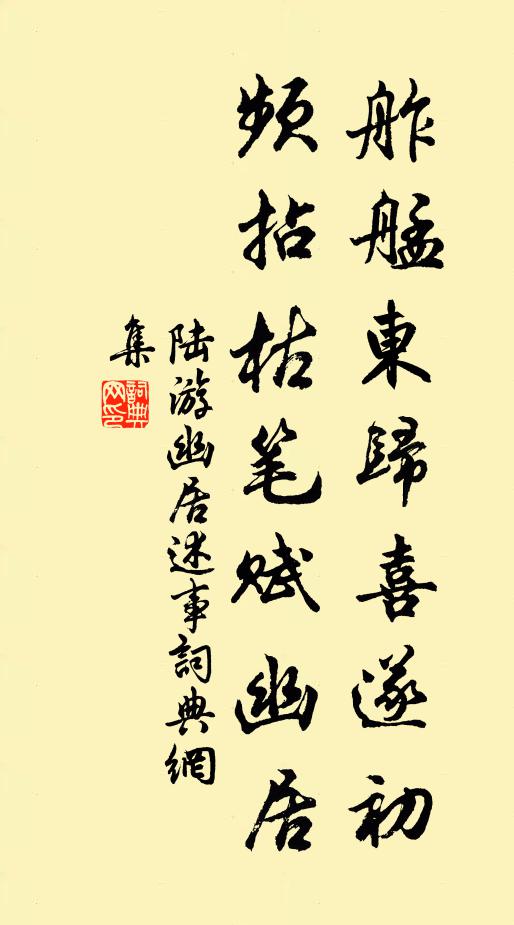 舴艋東歸喜遂初
頻拈枯笔赋幽居
陸游幽居述事詞典網
集
詞典網印